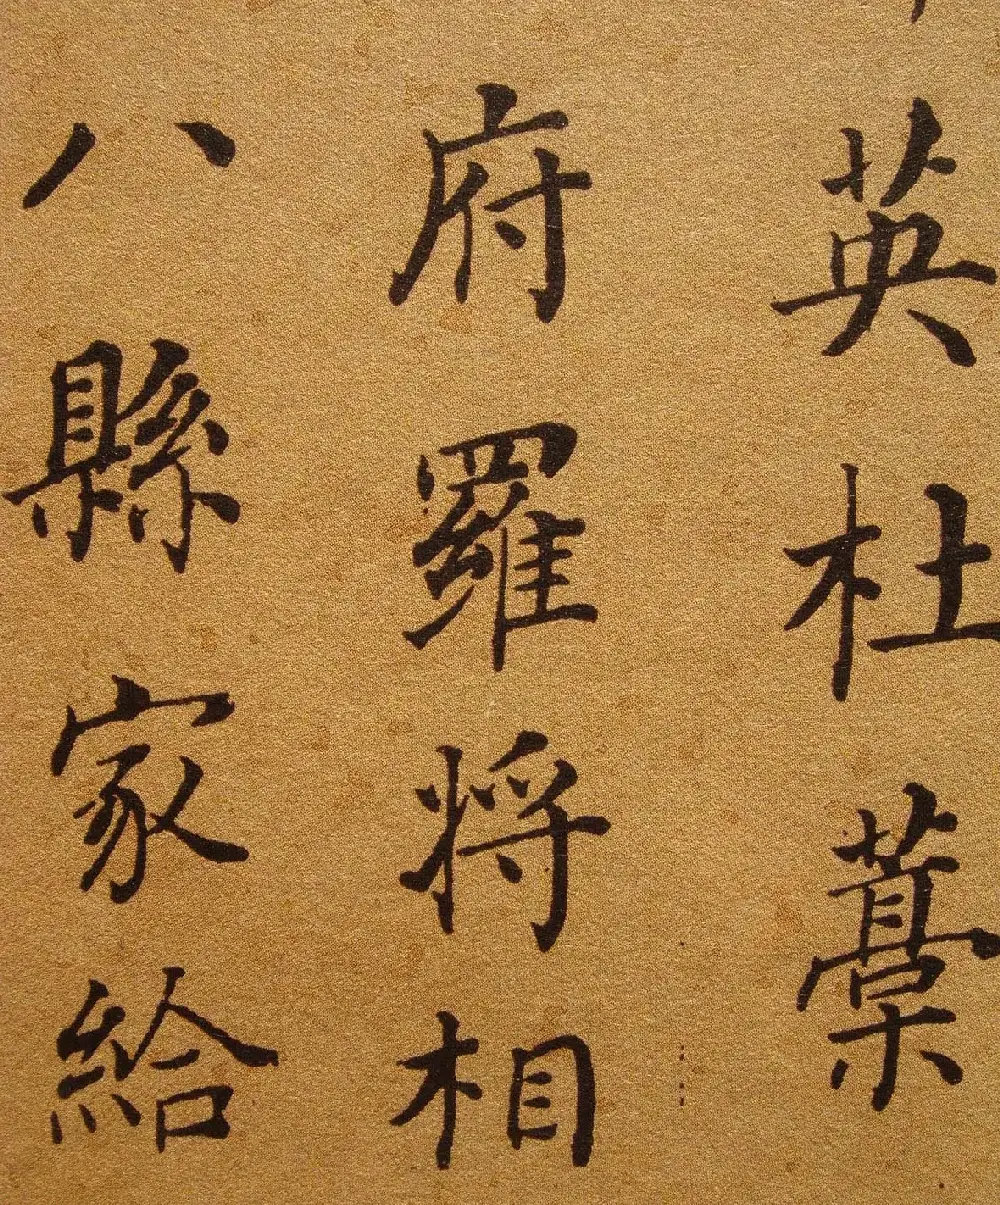 英杜藁
府羅将相
八縣家給